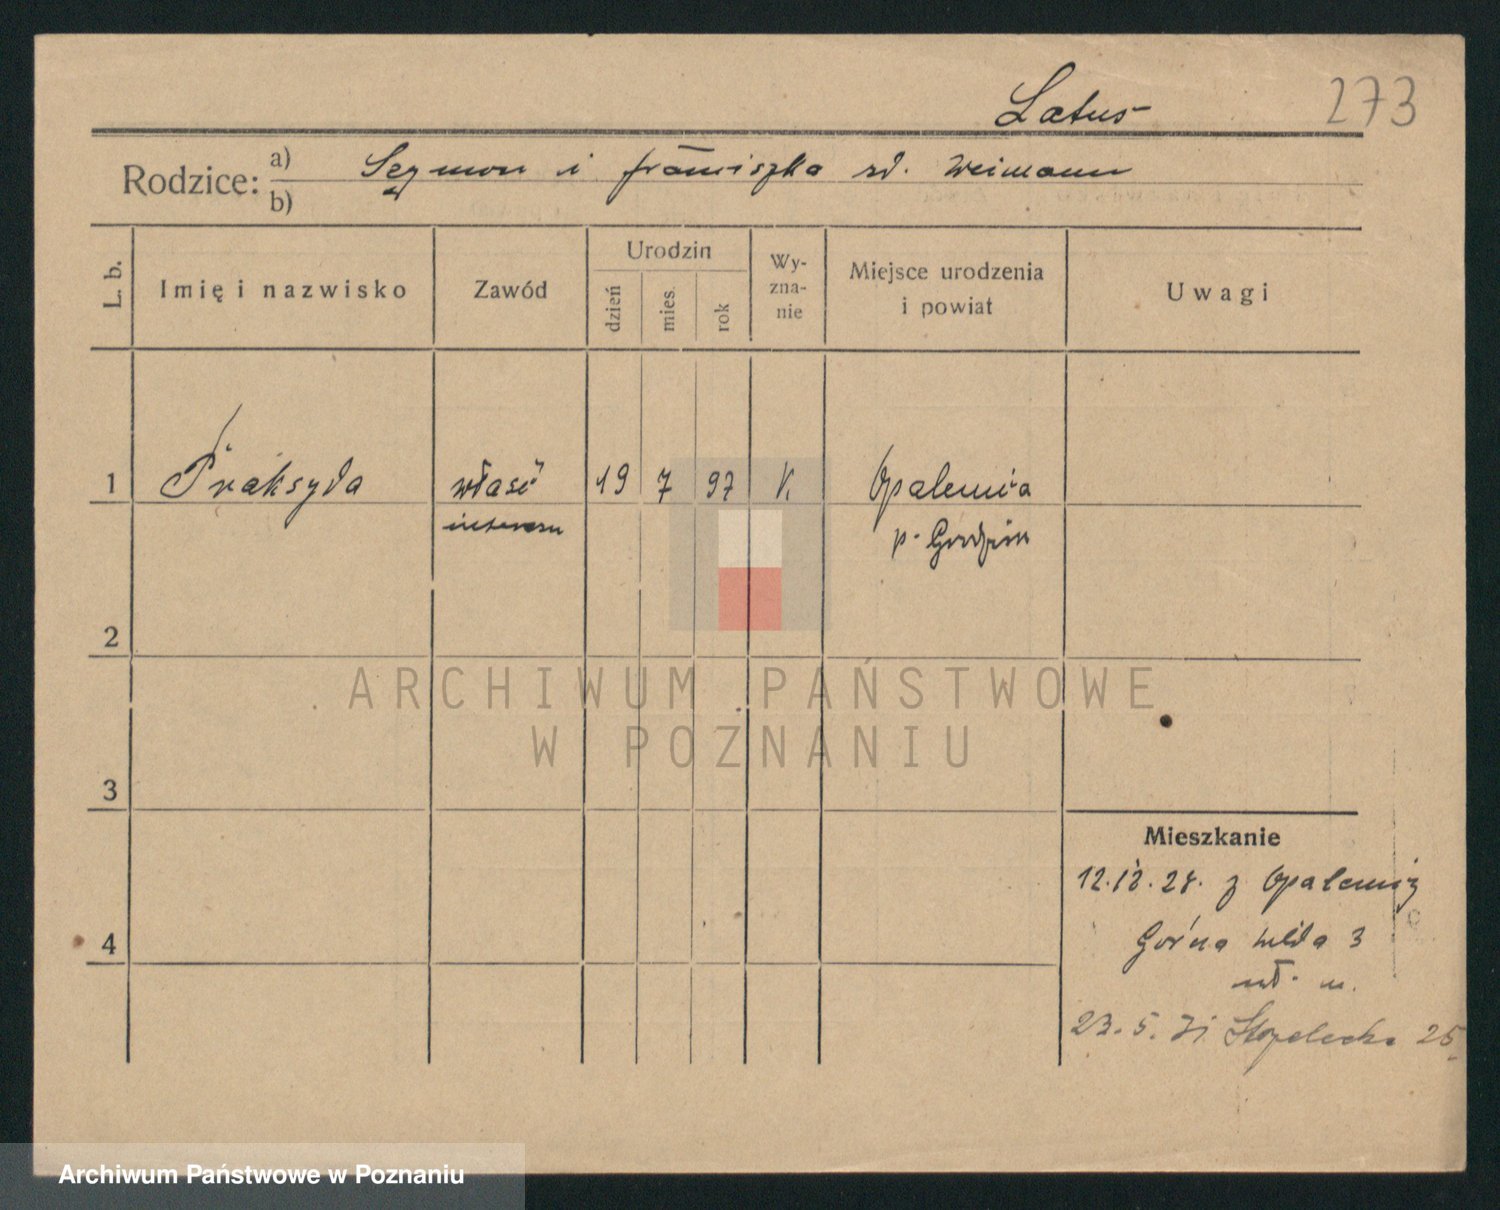 Latus
273
Rodzice: a) Szymon i franciszka rd. Weimann
b)
L. b.
Imię i nazwisko
Zawód
Urodzin
dzień
mies.
rok
Wy-
zna-
nie
Miejsce urodzenia
i powiat
Uwagi
1 Praksyda właśc 19 7 97 k. Opalenica
interesu p. Grodzisk
2
ARCHIWUM PAŃSTWOWE
W POZNANIU
3
Mieszkanie
12.12.28. z Opalenicy
4
Górna Wilda 3
wł. m.
23.5.31 Strzelecka 25
Archiwum Państwowe w Poznaniu